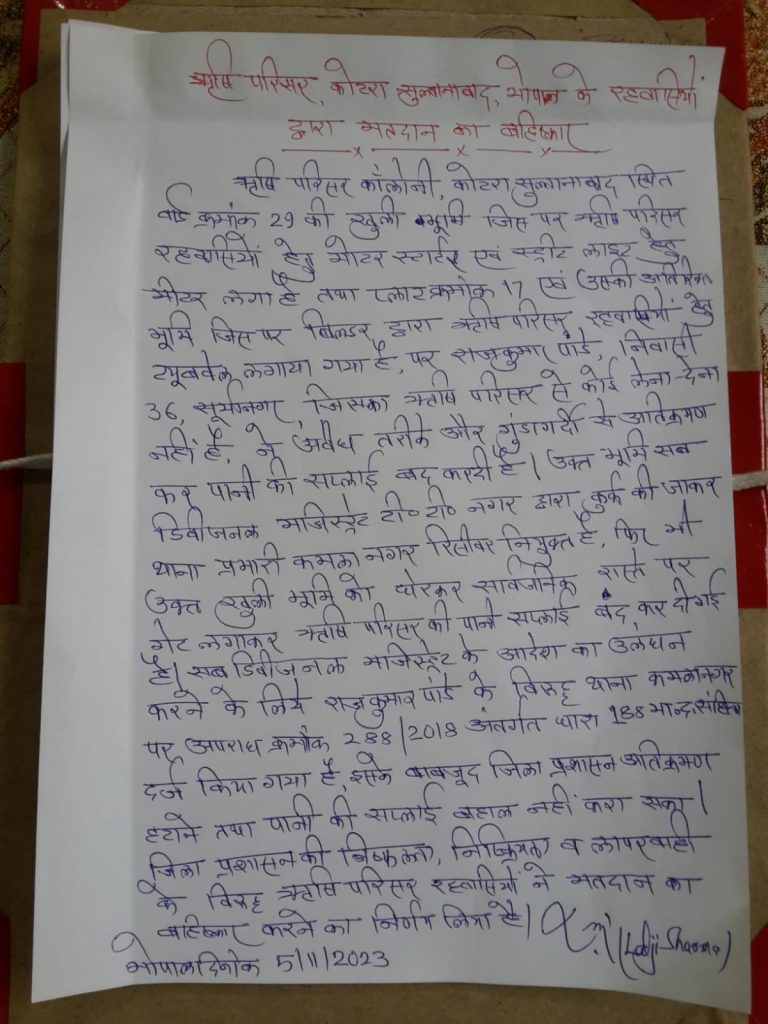 ऋषि परिसर, कोटरा सुल्तानाबाद, भोपाल के रहवासियों
द्वारा मतदान का बहिष्कार
ऋषि परिसर कॉलोनी, कोटरा सुल्तानाबाद स्थित
वार्ड क्रमांक 29 की खुली भूमि जिस पर ऋषि परिसर
रहवासियों हेतु मोटर स्टार्टर एवं स्ट्रीट लाइट हेतु
मीटर लगा है तथा प्लाट क्रमांक 17 एवं उसकी अतिरिक्त
भूमि जिस पर बिल्डर द्वारा ऋषि परिसर रहवासियों हेतु
ट्यूबवेल लगाया गया है, पर राजकुमार पांडे, निवासी
36, सूर्यानगर, जिसका ऋषि परिसर से कोई लेना-देना
नहीं है, ने अवैध तरीके और गुंडागर्दी से अतिक्रमण
कर पानी की सप्लाई बंद कर दी है। उक्त भूमि सब
डिवीजनल मजिस्ट्रेट टी० टी० नगर द्वारा कुर्क की जाकर
थाना प्रभारी कमला नगर रिसीवर नियुक्त है, फिर भी
उक्त खुली भूमि को घेरकर सार्वजनिक रास्ते पर
गेट लगाकर ऋषि परिसर की पानी सप्लाई बंद कर दी गई
है। सब डिवीजनल मजिस्ट्रेट के आदेश का उलंघन
करने के लिये राजकुमार पांडे के विरुद्ध थाना कमलानगर
पर अपराध क्रमांक 288/2018 अंतर्गत धारा 188 भा०द०संहिता
दर्ज किया गया है, इसके बावजूद जिला प्रशासन अतिक्रमण
हटाने तथा पानी की सप्लाई बहाल नहीं करा सका।
जिला प्रशासन की विफलता, निष्क्रियता व लापरवाही
के विरुद्ध ऋषि परिसर रहवासियों ने मतदान का
बहिष्कार करने का निर्णय लिया है। (Ladji Sharma)
भोपाल दिनांक 5/11/2023